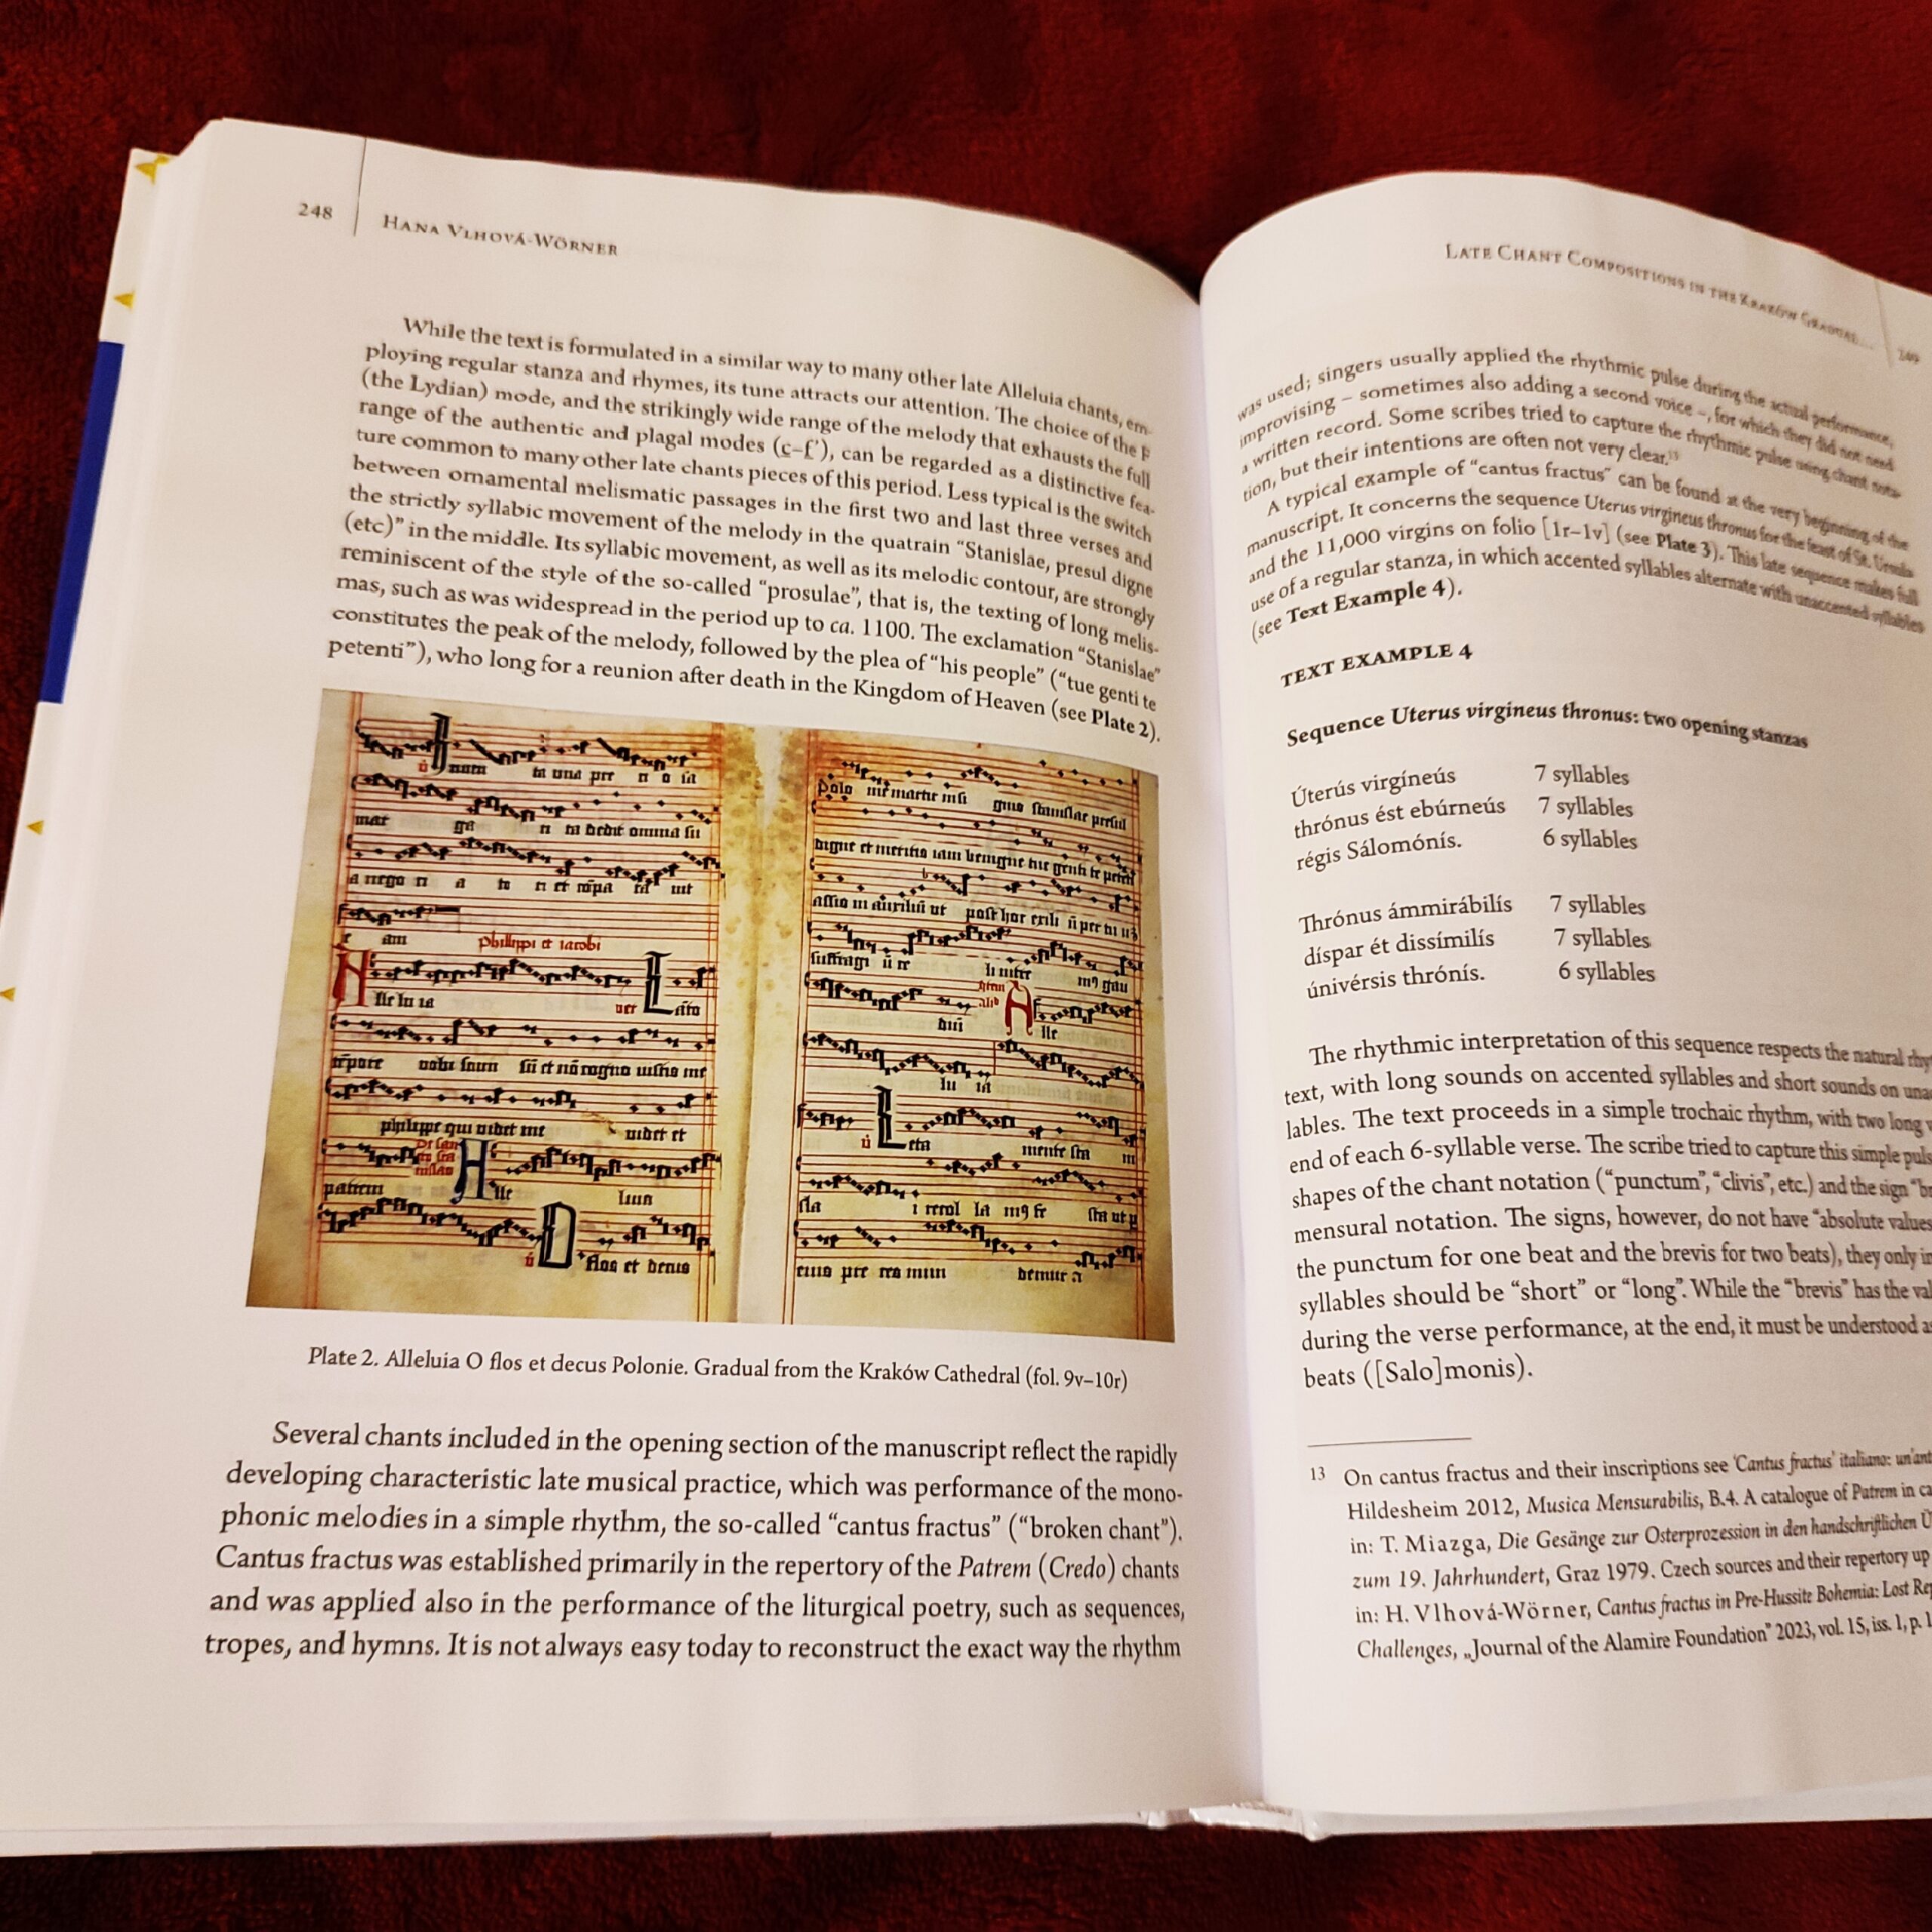 248
HANA VLHOVÁ-WÖRNER
While the text is formulated in a similar way to many other late Alleluia chants, em-
ploying regular stanza and rhymes, its tune attracts our attention. The choice of the F
(the Lydian) mode, and the strikingly wide range of the melody that exhausts the full
range of the authentic and plagal modes (c–f’), can be regarded as a distinctive fea-
ture common to many other late chants pieces of this period. Less typical is the switch
between ornamental melismatic passages in the first two and last three verses and
the strictly syllabic movement of the melody in the quatrain “Stanislae, presul digne
(etc)” in the middle. Its syllabic movement, as well as its melodic contour, are strongly
reminiscent of the style of the so-called “prosulae”, that is, the texting of long melis-
mas, such as was widespread in the period up to ca. 1100. The exclamation “Stanislae”
constitutes the peak of the melody, followed by the plea of “his people” (“tue genti te
petenti”), who long for a reunion after death in the Kingdom of Heaven (see Plate 2).
ta una pre
dedit omnia su
am philippi et iacobi
lle lu ia
philippe qui videt me videt et
patrem lle luia
flos et decus
Polo
digne et meritis iam benigne tue genti te petenti
lle
lu ia
leta mente sta
Plate 2. Alleluia O flos et decus Polonie. Gradual from the Kraków Cathedral (fol. 9v–10r)
Several chants included in the opening section of the manuscript reflect the rapidly
developing characteristic late musical practice, which was performance of the mono-
phonic melodies in a simple rhythm, the so-called “cantus fractus” (“broken chant”).
Cantus fractus was established primarily in the repertory of the Patrem (Credo) chants
and was applied also in the performance of the liturgical poetry, such as sequences,
tropes, and hymns. It is not always easy today to reconstruct the exact way the rhythm
LATE CHANT COMPOSITIONS IN THE KRAKÓW GRADUAL...
249
was used; singers usually applied the rhythmic pulse during the actual performance,
improvising – sometimes also adding a second voice –, for which they did not need
a written record. Some scribes tried to capture the rhythmic pulse using chant nota-
tion, but their intentions are often not very clear.13
A typical example of “cantus fractus” can be found at the very beginning of the
manuscript. It concerns the sequence Uterus virgineus thronus for the feast of St. Ursula
and the 11,000 virgins on folio [1r–1v] (see Plate 3). This late sequence makes full
use of a regular stanza, in which accented syllables alternate with unaccented syllables
(see Text Example 4).
TEXT EXAMPLE 4
Sequence Uterus virgineus thronus: two opening stanzas
Úterús virgíneús 7 syllables
thrónus ést ebúrneús 7 syllables
régis Sálomónís. 6 syllables
Thrónus ámmirábilís 7 syllables
díspar ét dissímilís 7 syllables
únivérsis thrónís. 6 syllables
The rhythmic interpretation of this sequence respects the natural
text, with long sounds on accented syllables and short sounds on
lables. The text proceeds in a simple trochaic rhythm, with two long
end of each 6-syllable verse. The scribe tried to capture this simple
shapes of the chant notation (“punctum”, “clivis”, etc.) and the sign
mensural notation. The signs, however, do not have “absolute values
the punctum for one beat and the brevis for two beats), they only
syllables should be “short” or “long”. While the “brevis” has the
during the verse performance, at the end, it must be understood
beats ([Salo]monis).
13 On cantus fractus and their inscriptions see ‘Cantus fractus’ italiano:
Hildesheim 2012, Musica Mensurabilis, B.4. A catalogue of Patrem in
in: T. Miazga, Die Gesänge zur Osterprozession in den handschriftlichen
zum 19. Jahrhundert, Graz 1979. Czech sources and their repertory up
in: H. Vlhová-Wörner, Cantus fractus in Pre-Hussite Bohemia: Lost
Challenges, „Journal of the Alamire Foundation” 2023, vol. 15, iss. 1, p.